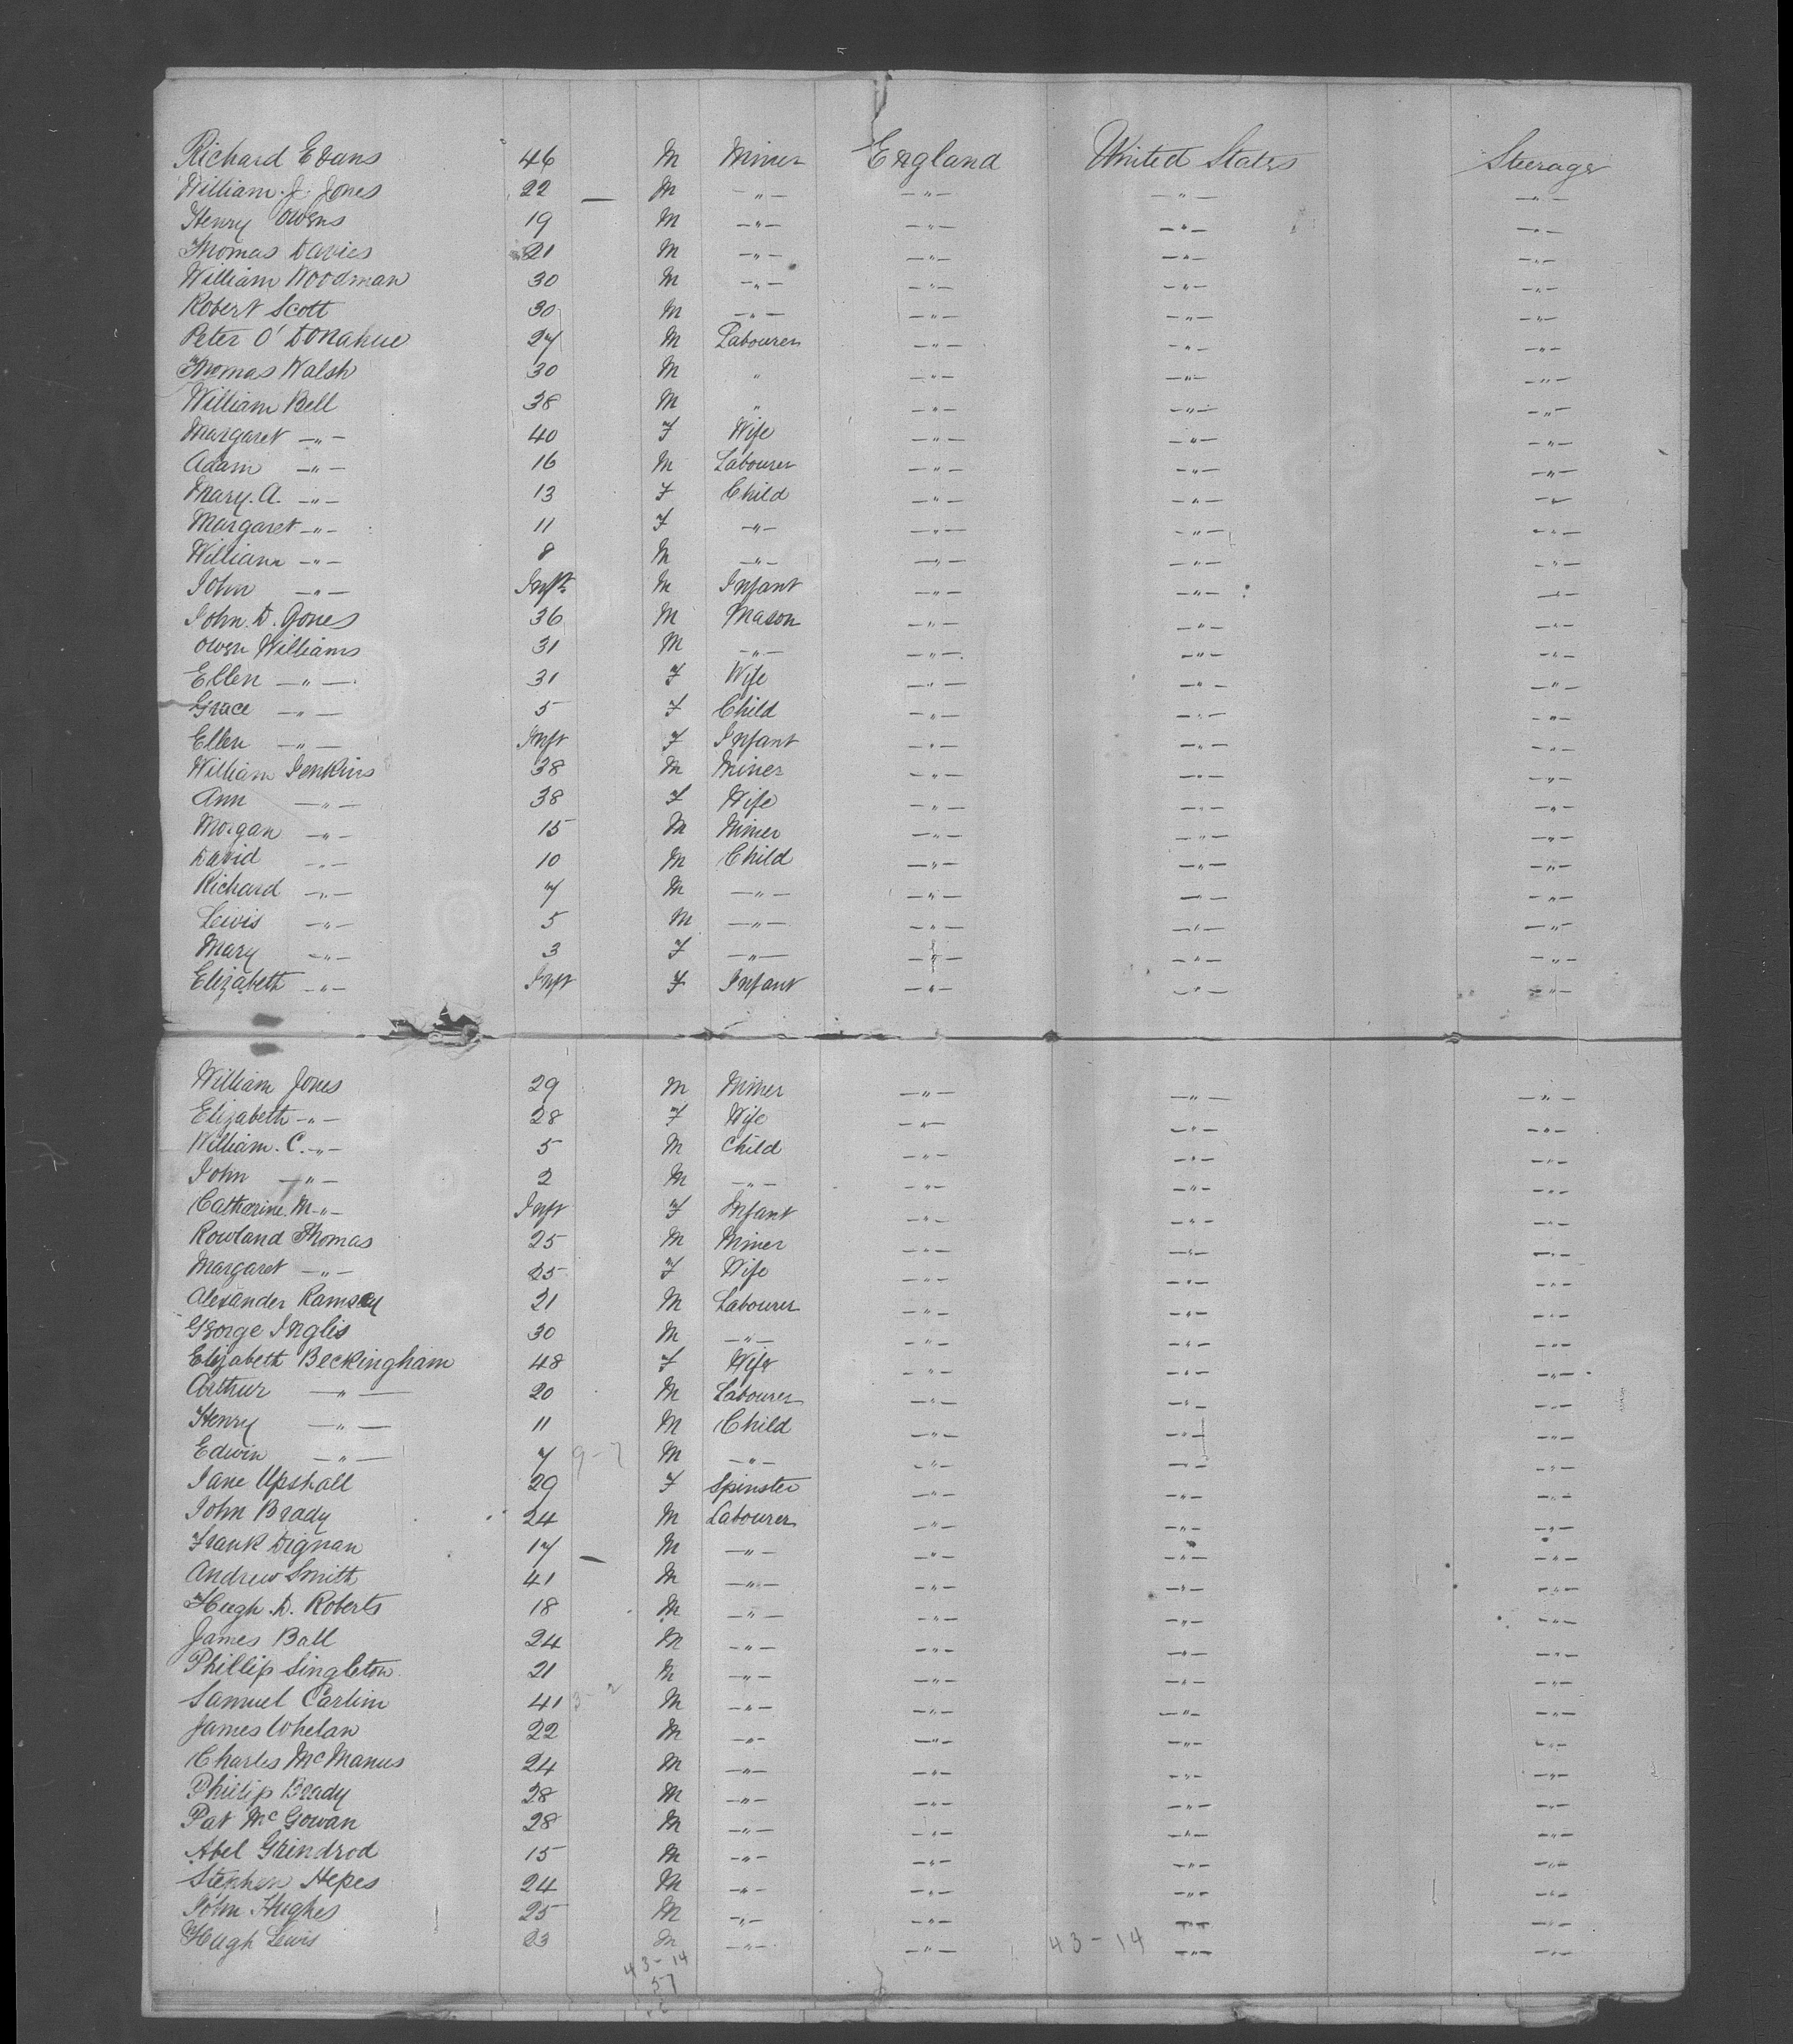 Richard Evans 46 M Miner England United States Steerage
William J. Jones 22 — M —"— —"— —"— —"—
Henry Owens 19 M —"— —"— —"— —"—
Thomas Davies 21 M —"— —"— —"— —"—
William Woodman 30 M —"— —"— —"— —"—
Robert Scott 30 M —"— —"— —"— —"—
Peter O'Donahue 27 M Labourer —"— —"— —"—
Thomas Walsh 30 M " —"— —"— —"—
William Bell 38 M " —"— —"— —"—
Margaret —"— 40 F Wife —"— —"— —"—
Adam —"— 16 M Labourer —"— —"— —"—
Mary. A. —"— 13 F Child —"— —"— —"—
Margaret —"— 11 F —"— —"— —"— —"—
William —"— 8 M —"— —"— —"— —"—
John —"— Inft M Infant —"— —"— —"—
John. D. Jones 36 M Mason —"— —"— —"—
Owen Williams 31 M —"— —"— —"— —"—
Ellen —"— 31 F Wife —"— —"— —"—
Grace —"— 5 F Child —"— —"— —"—
Ellen —"— Inft F Infant —"— —"— —"—
William Jenkins 38 M Miner —"— —"— —"—
Ann —"— 38 F Wife —"— —"— —"—
Morgan —"— 15 M Miner —"— —"— —"—
David —"— 10 M Child —"— —"— —"—
Richard —"— 7 M —"— —"— —"— —"—
Lewis —"— 5 M —"— —"— —"— —"—
Mary —"— 3 F —"— —"— —"— —"—
Elizabeth —"— Inft F Infant —"— —"— —"—
William Jones 29 M Miner —"— —"— —"—
Elizabeth —"— 28 F Wife —"— —"— —"—
William. C. —"— 5 M Child —"— —"— —"—
John —"— 2 M —"— —"— —"— —"—
Catharine. M —"— Inft F Infant —"— —"— —"—
Rowland Thomas 25 M Miner —"— —"— —"—
Margaret —"— 25 F Wife —"— —"— —"—
Alexander Ramsay 21 M Labourer —"— —"— —"—
George Inglis 30 M —"— —"— —"— —"—
Elizabeth Beckingham 48 F Wife —"— —"— —"—
Arthur —"— 20 M Labourer —"— —"— —"—
Henry —"— 11 M Child —"— —"— —"—
Edwin —"— 7 9-7 M —"— —"— —"— —"—
Jane Upshall 29 F Spinster —"— —"— —"—
John Brady 24 M Labourer —"— —"— —"—
Frank Dignan 17 — M —"— —"— —"— —"—
Andrew Smith 41 M —"— —"— —"— —"—
Hugh. D. Roberts 18 M —"— —"— —"— —"—
James Ball 24 M —"— —"— —"— —"—
Phillip Singleton 21 M —"— —"— —"— —"—
Samuel Carlin 41 3-2 M —"— —"— —"— —"—
James Whelan 22 M —"— —"— —"— —"—
Charles McManus 24 M —"— —"— —"— —"—
Phillip Brady 28 M —"— —"— —"— —"—
Pat McGowan 28 M —"— —"— —"— —"—
Abel Grindrod 15 M —"— —"— —"— —"—
Stephen Hepes 24 M —"— —"— —"— —"—
John Hughes 25 M —"— —"— —"— —"—
Hugh Lewis 23 M —"— —"— 43-14 —"— —"—
43-14
57